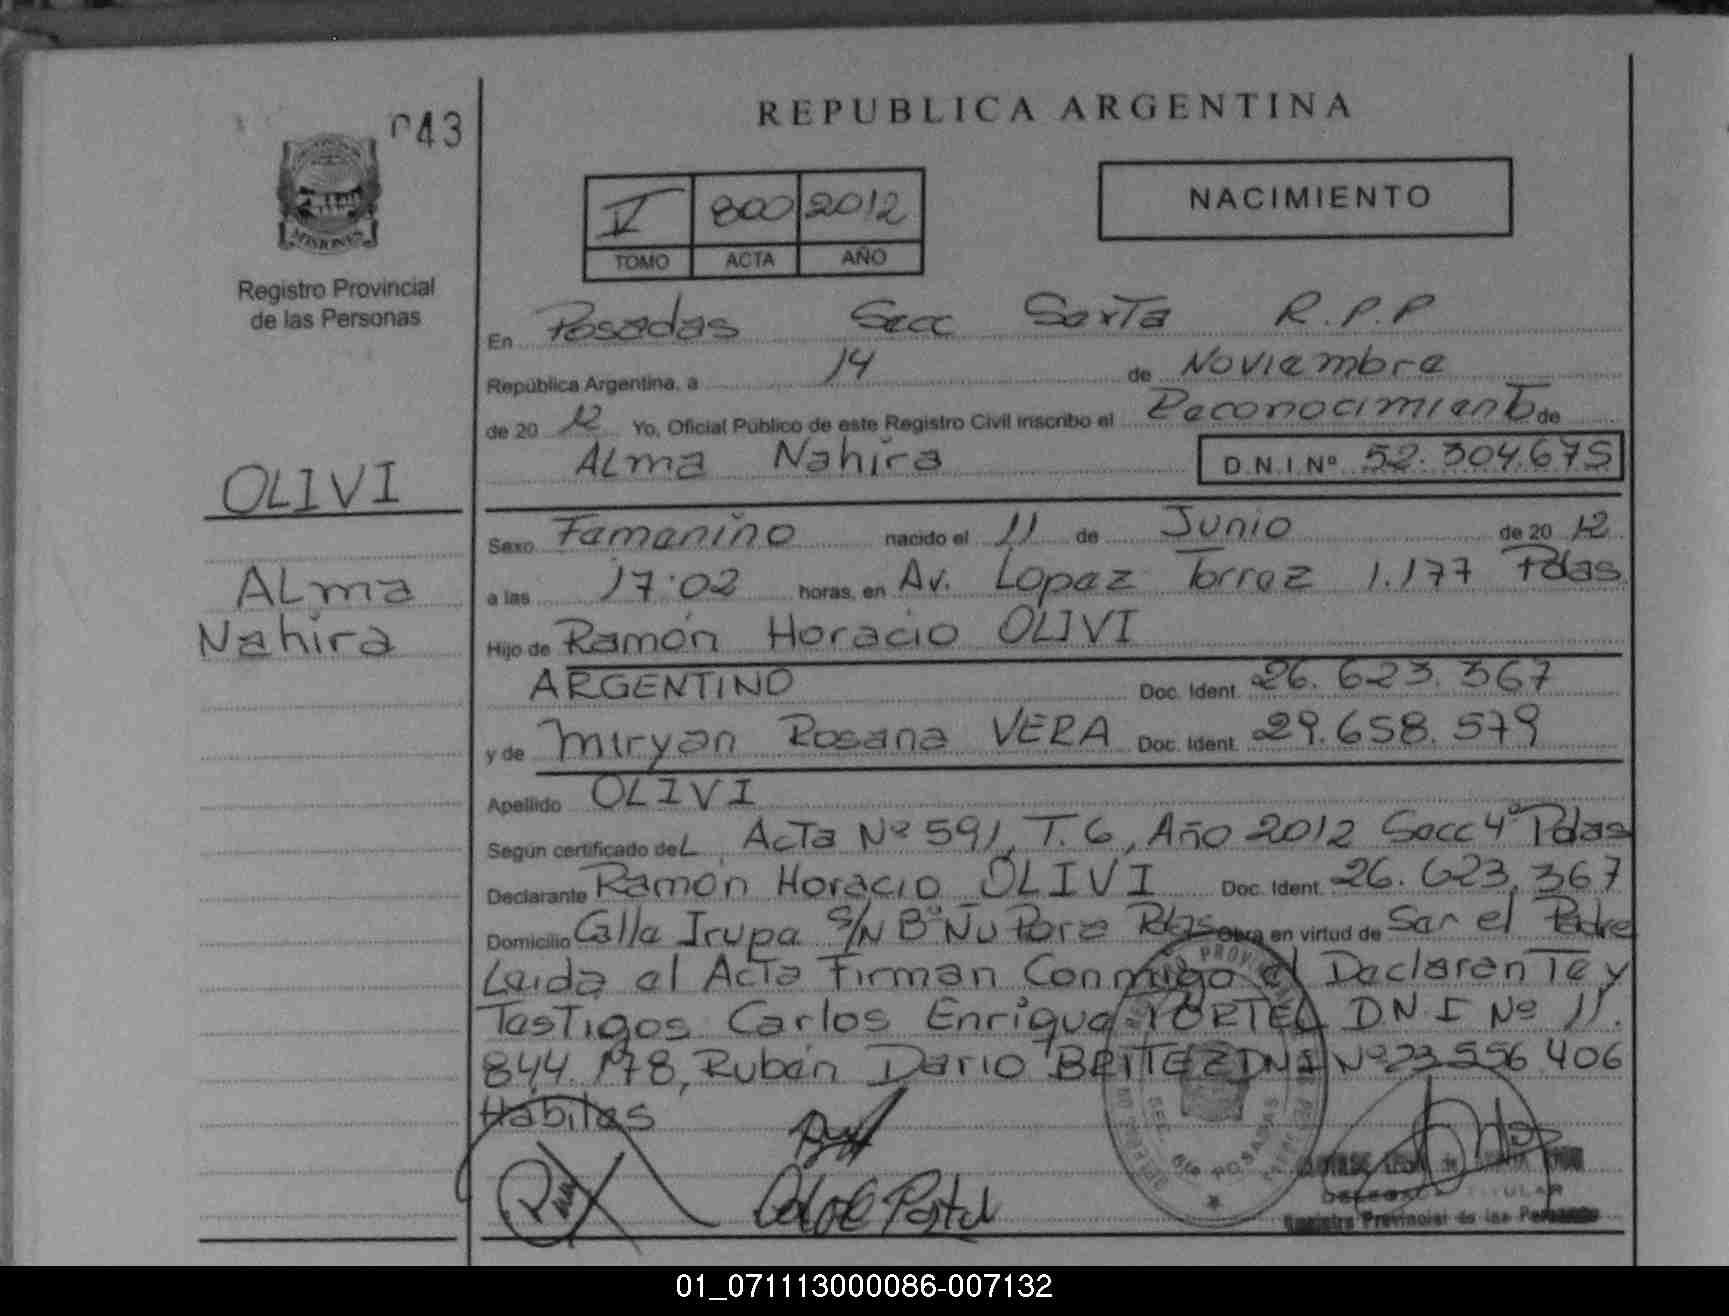 043
REPUBLICA ARGENTINA
NACIMIENTO
V 800 2012
TOMO ACTA AÑO
MISIONES
Registro Provincial
de las Personas
En Posadas Secc Sexta R.P.P
República Argentina, a 14 de Noviembre
de 20 12 Yo, Oficial Público de este Registro Civil inscribo el Reconocimiento de
ALma Nahira D.N.I.Nº 52.304.675
OLIVI
ALma
Nahira
Sexo Femenino nacido el 11 de Junio de 20 12
a las 17:02 horas, en Av. Lopez Torrez 1.177 Pdas
Hijo de Ramón Horacio OLIVI
ARGENTINO Doc. Ident. 26.623.367
y de Miryan Rosana VERA Doc. Ident. 29.658.579
Apellido OLIVI
Según certificado deL Acta Nº 591, T. 6, Año 2012 Secc 4º Pdas
Declarante Ramón Horacio OLIVI Doc. Ident. 26.623.367
Domicilio Calle Irupa S/N Bº Ñu Pora Pdas Obra en virtud de Ser el Padre
Leida el Acta Firman Conmigo el Declarante y
Testigos Carlos Enrique PORTEL DN.I Nº 11.
844.178, Rubén Dario BEITEZ DNI Nº 23 556 406
Hábiles
SEC. 6ta POSADAS
TITULAR
Registro Provincial de las Personas
01_071113000086-007132